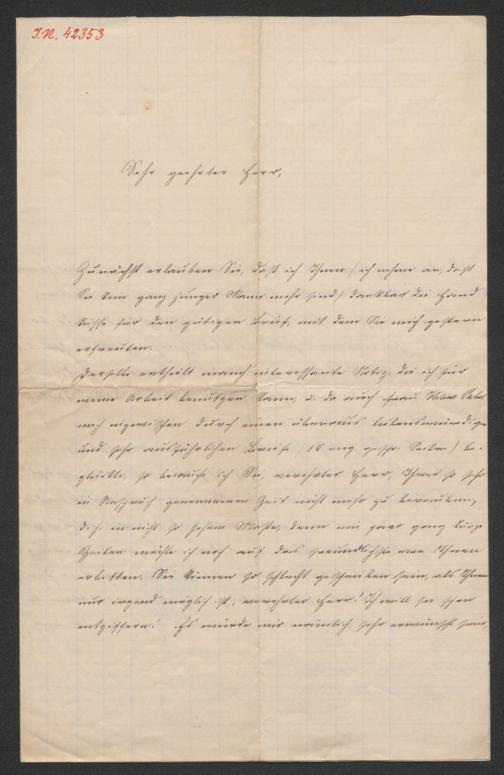 I.N. 42353
Sehr geehrter Herr,
Zunächst erlauben Sie, daß ich Ihnen (ich nehme an, daß
Sie kein ganz junger Mann mehr sind) dankbar die Hand
küsse für den gütigen Brief, mit dem Sie mich gestern
erfreuten.
Derselbe enthielt manch interessante Notiz, die ich für
meine Arbeit benutzen kann, u. da auch Frau
mich inzwischen durch einen überaus liebenswürdigen
und sehr ausführlichen Briefe (16 eng geschr. Seiten) be-
glückte, so brauche ich Sie, verehrter Herr, Ihrer so sehr
in Anspruch genommenen Zeit nicht mehr zu berauben,
d. h. in nicht so hohem Maße, denn ein paar ganz kurze
Zeilen möchte ich noch auf das freundlichste von Ihnen
erbitten. Sie können so schlecht geschrieben sein, als Ihnen
nur irgend möglich ist, verehrter Herr! Ich will sie schon
entziffern! Es würde mir nämlich sehr erwünscht sein,